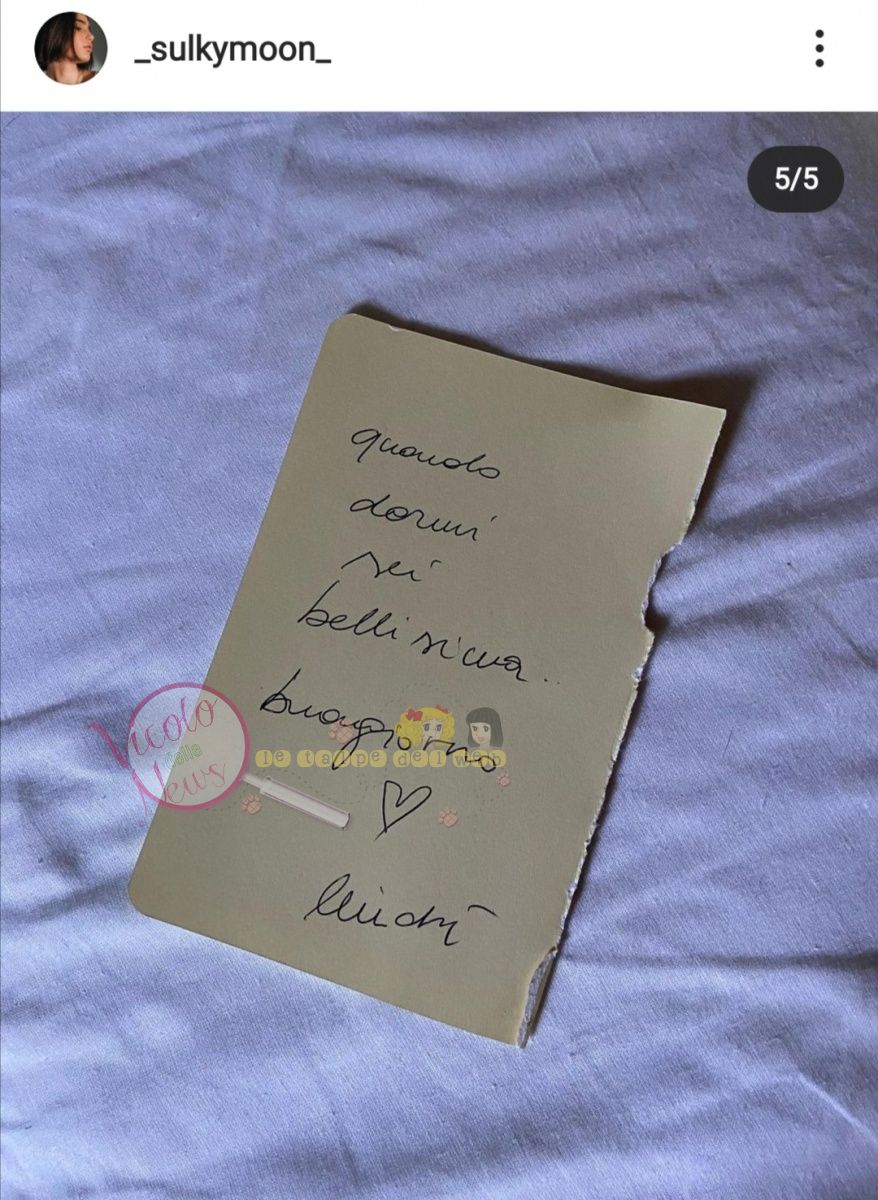 _sulkymoon_
5/5
quando
dormi
sei
bellissima..
buongiorno
Vicolo
delle
News
le talpe del web